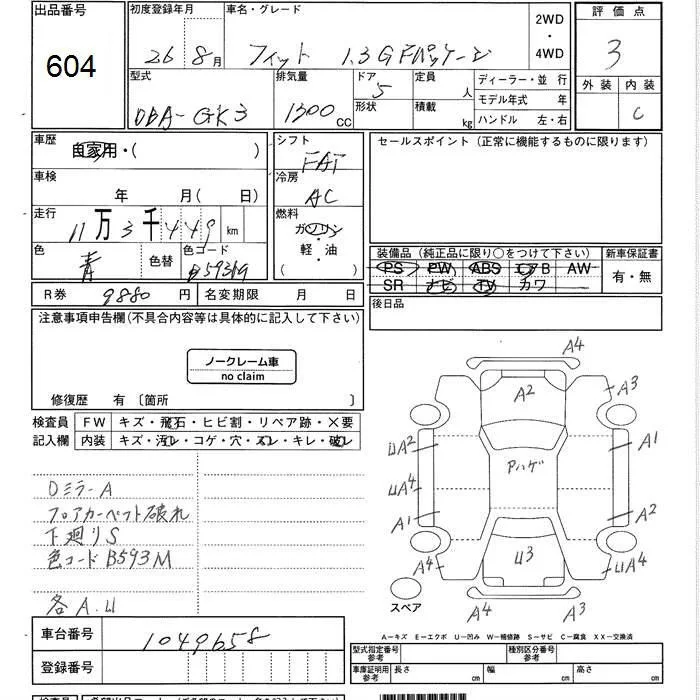 出品番号
604
初度登録年月
26 8月
車名・グレード
フィット 1.3G Fパッケージ
2WD
・
4WD
評価点
3
外装 内装
C
型式
DBA-GK3
排気量
1300CC
ドア
5
形状
定員
人
積載
kg
ディーラー・並 行
モデル年式 年
ハンドル 左・右
車歴
自家用・( )
車検
年 月( 日)
走行
11万3千449km
色
青
色替
色コード
シフト
FAT
冷房
AC
燃料
ガソリン
軽・油
( )
セールスポイント (正常に機能するものに限ります)
装備品 (純正品に限り○をつけて下さい)
PS PW ABS エアB AW
SR ナビ TV カワ
新車保証書
有・無
R券 9880円
名変期限 月 日
後日品
注意事項申告欄(不具合内容等は具体的に記入して下さい)
ノークレーム車
no claim
修復歴 有〔箇所 〕
検査員
記入欄
FW キズ・飛石・ヒビ割・リペア跡・×要
内装 キズ・汚レ・コゲ・穴・スレ・キレ・破レ
Dミラ-A
フロアカーペット破れ
下廻りS
色コードB593M
各A.U
A4
A2
A3
UA2
A1
Pハゲ
UA4
A1
A2
U3
UA4
A4
A3
スペア
A-キズ E-エクボ U-凹み W-補修跡 S-サビ C-腐食 XX-交換済
車台番号
1049658
登録番号
型式指定番号
参考
種別区分番号
参考
車庫証明用
参考
長さ cm
幅 cm
高さ cm